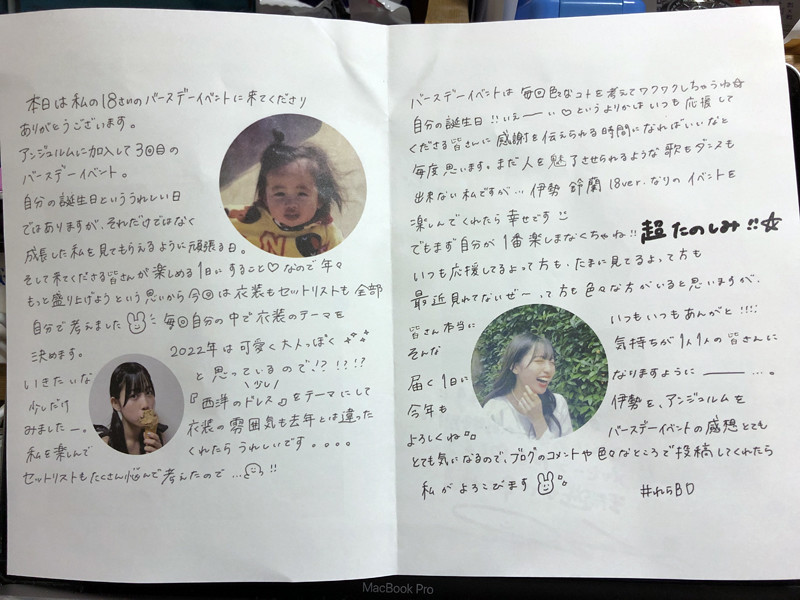 本日は私の18さいのバースデーイベントに来てくださり
ありがとうございます。
アンジュルムに加入して3回目の
バースデーイベント。
自分の誕生日といううれしい日
ではありますが、それだけではなく
成長した私を見てもらえるように頑張る日。
そして来てくださる皆さんが楽しめる1日にすること♡なので年々
もっと盛り上げようという思いから今回は衣装もセットリストも全部
自分で考えました 毎回自分の中で衣装のテーマを
決めます。 2022年は可愛く大人っぽく
いきたいな と思っているので、!?!?!?
少しだけ \少し/ 『西洋のドレス』をテーマにして
みましたー。 衣装の雰囲気も去年とは違った
私を楽しんで くれたらうれしいです。。。。
セットリストもたくさん悩んで考えたので…!!
バースデーイベントは毎回色々なコトを考えてワクワクしちゃうね☆
自分の誕生日!!いぇーーい♡というよりかはいつも応援して
くださる皆さんに感謝を伝えられる時間になればいいなと
毎度思います。まだ人を魅了させられるような歌もダンスも
出来ない私ですが…伊勢鈴蘭18ver.なりのイベントを
楽しんでくれたら幸せです
でもまず自分が1番楽しまなくちゃね!!超たのしみ!!☆
いつも応援してるよって方も、たまに見てるよって方も
最近見れてないぜ〜って方も色々な方がいると思いますが、
皆さん本当に いつもいつもあんがと!!!!
そんな 気持ちが1人1人の皆さんに
届く1日に なりますようにーー…。
今年も 伊勢を、アンジュルムを
よろしくね バースデーイベントの感想とても
とても気になるので、ブログのコメントや色々なところで投稿してくれたら
私がよろこびます #れらBD
MacBook Pro